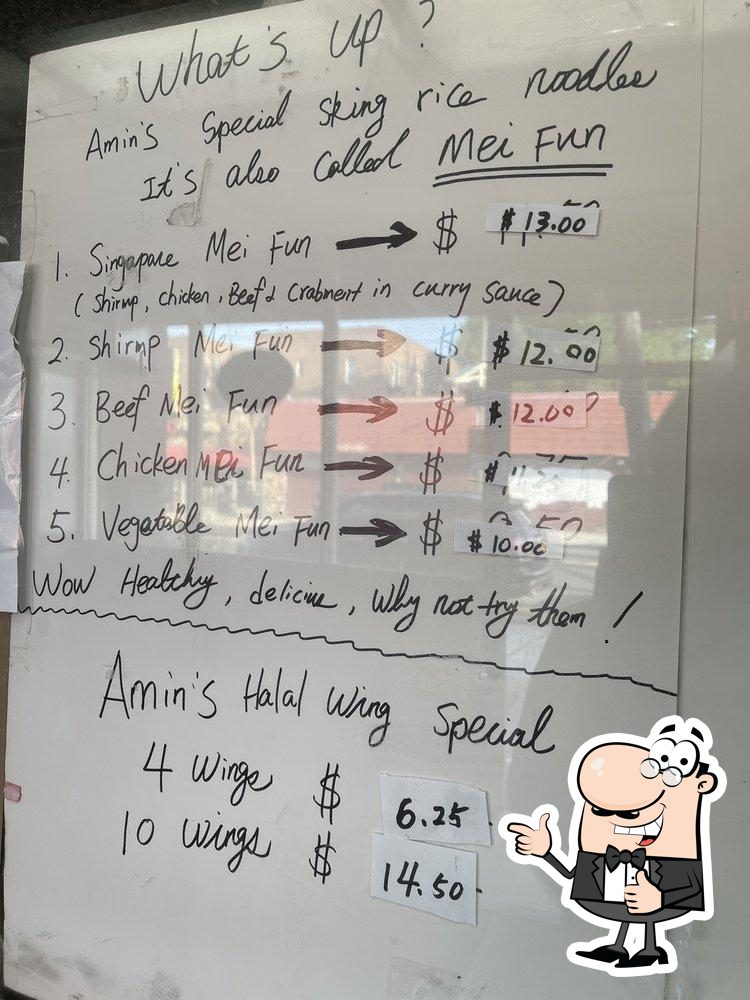 What's up?
Amin's Special Sking rice noodles
It's also Called Mei Fun
1. Singapare Mei Fun → $ $13.00
(Shirmp, chicken, Beef & Crabment in curry sauce)
2. Shirmp Mei Fun → $ $12.00
3. Beef Mei Fun → $ $12.00
4. Chicken MEi Fun → $ $11.25
5. Vegatable Mei Fun → $ $10.00
Wow Healthy, delicius, Why not try them!
Amin's Halal Wing Special
4 Wings $ 6.25
10 Wings $ 14.50